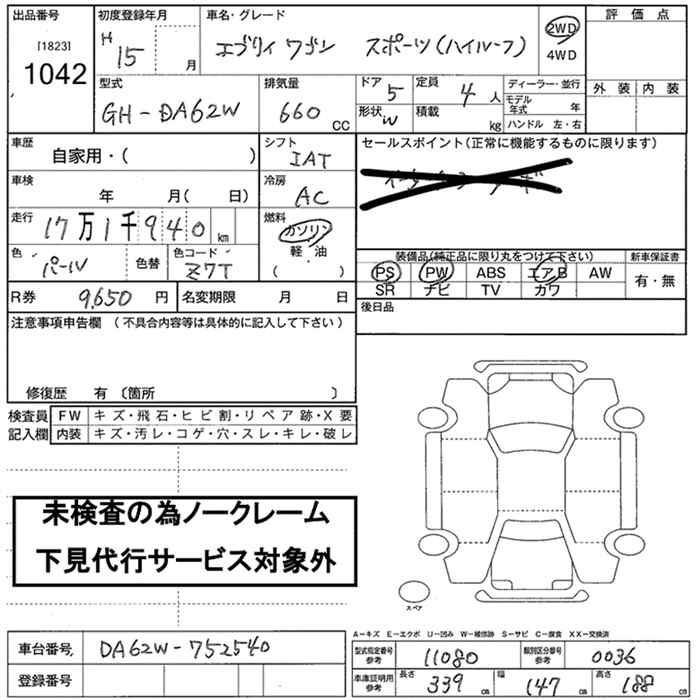 出品番号 初度登録年月 車名・グレード 評価点
[1823] 1042 H15 月 エブリィ ワゴン スポーツ(ハイルーフ) 2WD 4WD
外装 内装
型式 排気量 ドア 定員 ディーラー・並行
GH-DA62W 660 CC 5 4人 モデル年式 年
形状 W 積載 kg ハンドル 左・右
車歴 シフト セールスポイント(正常に機能するものに限ります)
自家用・( ) IAT
車検 冷房
年 月( 日) AC
走行 燃料
17万1千940km ガソリン
軽・油
( )
色 色替 色コード 装備品(純正品に限り丸をつけて下さい) 新車保証書
パール Z7T PS PW ABS エアB AW 有・無
SR ナビ TV カワ
R券 9,650円 名変期限 月 日 後日品
注意事項申告欄 (不具合内容等は具体的に記入して下さい)
修復歴 有 〔箇所 〕
検査員 FW キズ・飛石・ヒビ割・リペア跡・X要
記入欄 内装 キズ・汚レ・コゲ・穴・スレ・キレ・破レ
未検査の為ノークレーム
下見代行サービス対象外
スペア
A-キズ E-エクボ U-凹み W-補修跡 S-サビ C-腐食 XX-交換済
車台番号 DA62W-752540 型式指定番号 参考 11080 類別区分番号 参考 0036
登録番号 車庫証明用 参考 長さ 339cm 幅 147cm 高さ 188cm